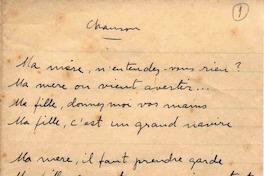 Chanson
1
Ma mère, n'entendez-vous rien ?
Ma mère on vient avertir...
Ma fille, donnez-moi vos mains
Ma fille, c'est un grand navire
Ma mère, il faut prendre garde
Ma fille